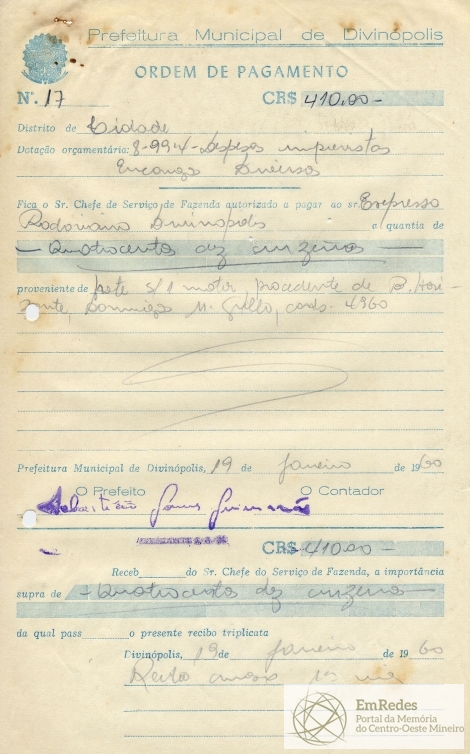 Prefeitura Municipal de Divinópolis
ORDEM DE PAGAMENTO
N.º 17 CR$ 410,00-
Distrito de Cidade
Dotação orçamentária: 8-99-4- Despesas imprevistas
Encargos Diversos
Fica o Sr. Chefe de Serviço de Fazenda autorizado a pagar ao sr. Expresso
Rodoviário Divinópolis a quantia de
- Quatrocentos dez cruzeiros -
proveniente de frete s/ 1 motor, procedente de B. Hori-
zonte, Domingos M. Grillo, conh. 4960
Prefeitura Municipal de Divinópolis, 19 de Janeiro de 1960
O Prefeito O Contador
Sebastião Gomes Guimarães
CR$ 410,00-
Receb____do Sr. Chefe do Serviço de Fazenda, a importância
supra de - Quatrocentos dez cruzeiros -
da qual pass____o presente recibo triplicata
Divinópolis, 19 de Janeiro de 1960
1ª via
EmRedes
Portal da Memória
do Centro-Oeste Mineiro